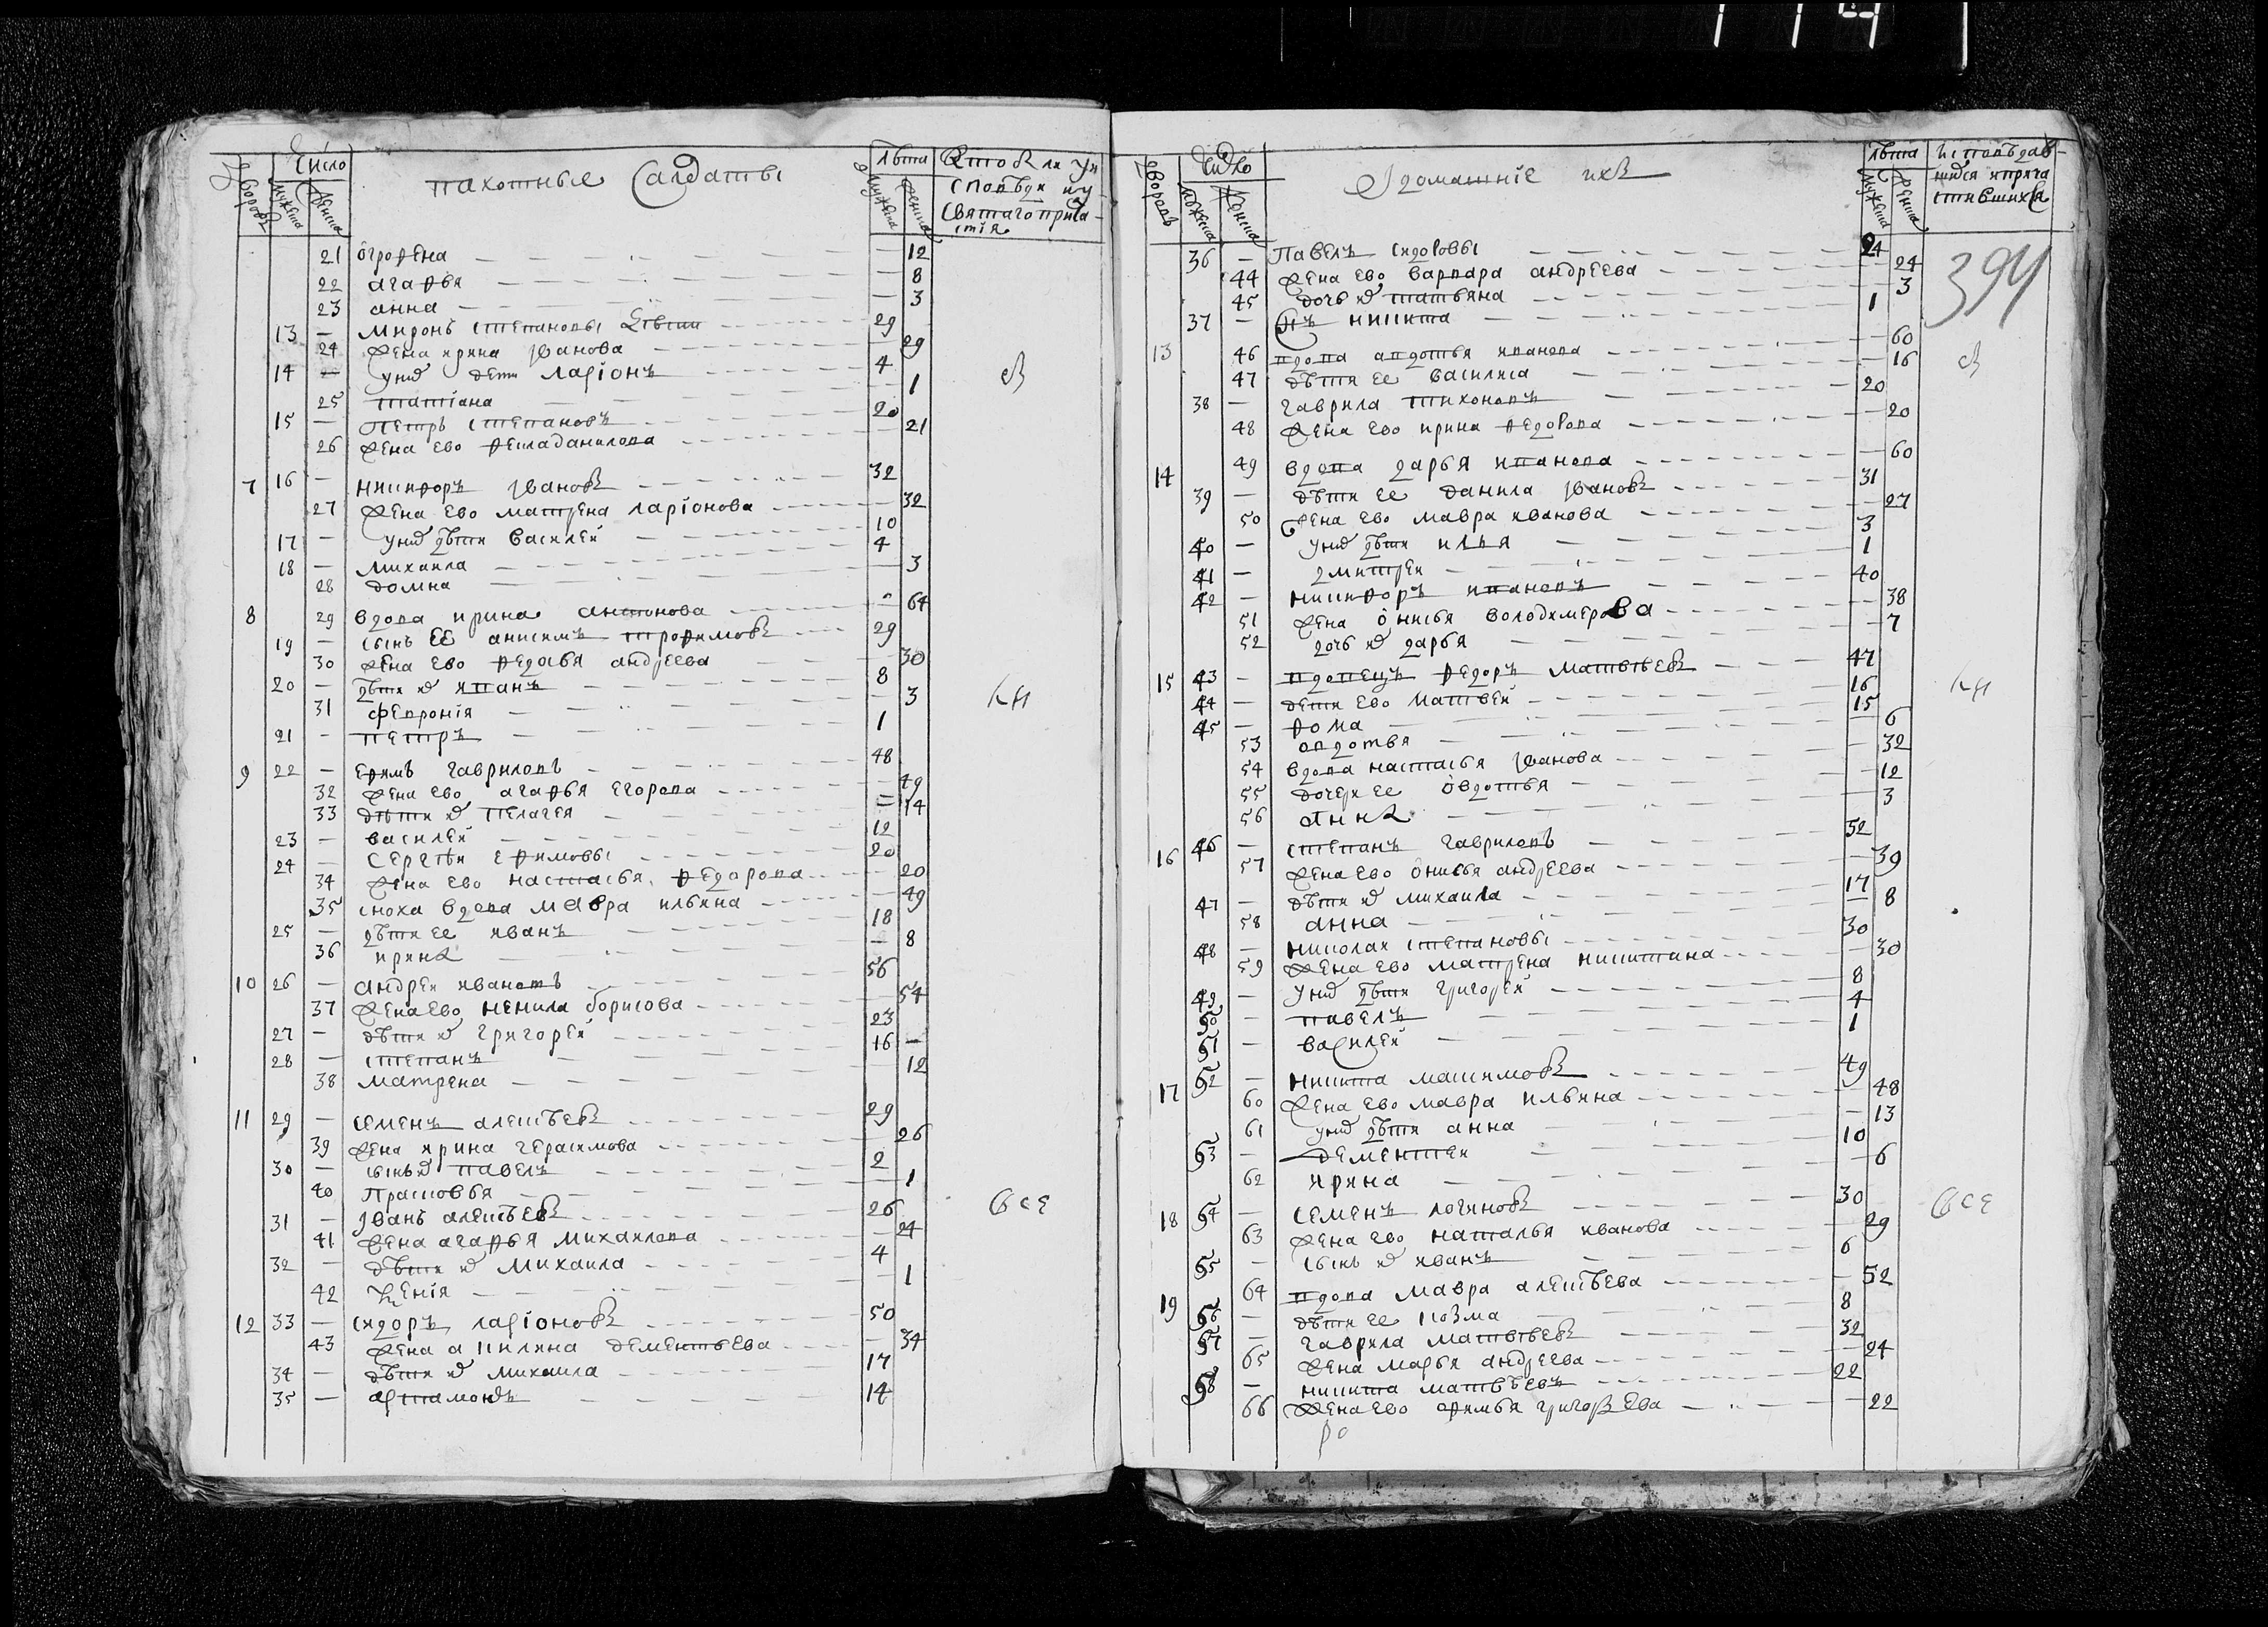 Число
Дворовъ
Мужеска
Женска
пахотные Салдаты
Лѣта
Мужеска
Женска
Кто были у и
споведи и у
святаго прича-
стія
21 огрофена — 12
22 агафья — 8
23 анна — 3
13 — Миронъ степановы 29
24 жена ирина Ивановa — 29
14 — у них дети ларіонъ 4
25 татіана — 1
15 — Петръ степановъ 20
26 жена ево фекла данилова — 21
7 16 — никифоръ Ивановъ 32
27 жена ево матрена ларіонова — 32
17 — у них дѣти василей 10
18 — михаила 4
28 домна — 3
8 29 вдова ирина антонова — 64
19 — сынъ ее анисимъ трофимовъ 29
30 жена ево федосья андреева — 30
20 — дѣти их иванъ 8
31 февронія — 3
21 — петръ 1
9 22 — ефимъ гавриловъ 48
32 жена ево агафья егорова — 49
33 дѣти их пелагея — 14
23 — василей 12
24 — сергѣи ефимовы 20
34 жена ево настасья федорова — 20
35 сноха вдова мавра ильина — 49
25 — дѣти ее иванъ 18
36 ирина — 8
10 26 — андреи ивановъ 56
37 жена ево ненила борисова — 54
27 — дѣти их григорей 23
28 — степанъ 16 —
38 матрена — 12
11 29 — семенъ алексѣевъ 29
39 жена ирина герасимова — 26
30 — сынъ их павелъ 2
40 прасковья — 1
31 — Иванъ алексѣевъ 26
41 жена агафья михаилова — 24
32 — дѣти их михаила 4
42 ксенія — 1
12 33 — сидоръ ларіоновъ 50
43 жена акилина дементьева — 34
34 — дѣти их михаила 17
35 — артамонъ 14
св
кн
все
Число
Дворовъ
Мужеска
Женска
И домашніе ихъ
Лѣта
Мужеска
Женска
исповѣдав-
шихся и прича
стившихся
394
36 — Павелъ сидоровы 24
44 жена ево варвара андреева — 24
45 дочь их татьяна — 3
37 — сынъ никита 1
13 46 вдова авдотья иванова — 60
47 дѣти ее василиса — 16
38 — гаврила тихоновъ 20
48 жена ево ирина федорова — 20
14 49 вдова дарья иванова — 60
39 — дѣти ее данила Ивановъ 31
50 жена ево мавра иванова — 27
40 — у них дѣти илья 3
41 — дмитреи 1
42 — никифоръ ивановъ 40
51 жена онисья володимерова — 38
52 дочь их дарья — 7
15 43 — вдовецъ федоръ матвѣевъ 47
44 — дети ево матвей 16
45 — фома 15
53 авдотья — 6
54 вдова настасья Иванова — 32
55 дочери ее овдотья — 12
56 анна — 3
16 46 — степанъ гавриловъ 52
57 жена ево онисья андреева — 39
47 — дѣти их михаила 17
58 анна — 8
48 — николаи степановы 30
59 жена ево матрена никитина — 30
49 — у них дѣти григорей 8
50 — павелъ 4
51 — василей 1
17 52 — никита макимовъ 49
60 жена ево мавра ильина — 48
61 у них дѣти анна — 13
53 — дементеи 10
62 ирина — 6
18 54 — семенъ логиновъ 30
63 жена ево наталья иванова — 29
55 — сынъ их иванъ 6
19 64 вдова мавра алексѣева — 52
56 — дѣти ее козма 8
57 — гаврила матвѣевъ 32
65 жена марья андреева — 24
58 — никита матвѣевъ 22
66 жена ево афимья григорьева — 22
св
кн
все
ро